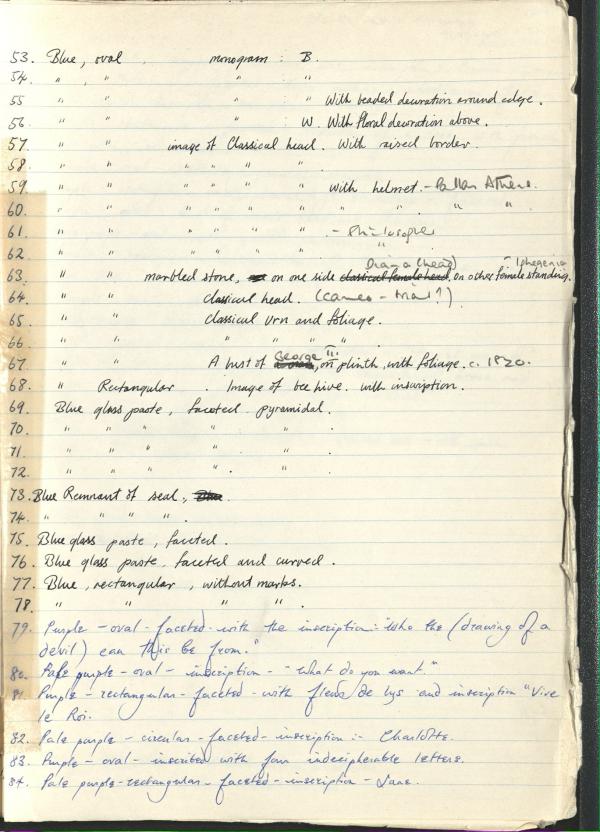 53. Blue, oval monogram : B.
54. " " " "
55 " " " : " With beaded decoration around edge.
56. " " " : W. With floral decoration above.
57. " " image of Classical head. With raised border.
58. " " " " " "
59 " " " " " " With helmet. - Pallas Athene.
60. " " " " " " " " " "
61. " " " " " " - Philosopher
62 " " " " " " "
Diana (head) - Iphegenia
63. " " marbled stone, on one side classical female head, on other female standing.
64. " " classical head. (cameo - trial?)
65. " " classical urn and foliage.
66. " " " " " "
George III
67. " " A bust of , on plinth, with foliage. c. 1820.
68. " Rectangular . Image of bee hive. with inscription.
69. Blue glass paste, faceted pyramidal.
70. " " " " " .
71. " " " " " .
72. " " " " . " .
73. Blue Remnant of seal,
74. " " " " .
75. Blue glass paste, faceted.
76. Blue glass paste, faceted and curved.
77. Blue, rectangular, without marks.
78. " " " " .
79. Purple - oval - faceted - with the inscription: "Who the (drawing of a
devil) can this be from."
80. Pale purple - oval - inscription - "What do you want."
81. Purple - rectangular - faceted - with fleur de lys and inscription "Vive
le Roi.
82. Pale purple - circular - faceted - inscription :- Charlotte.
83. Purple - oval - inscribed with four indecipherable letters.
84. Pale purple - rectangular - faceted - inscription - Jane.